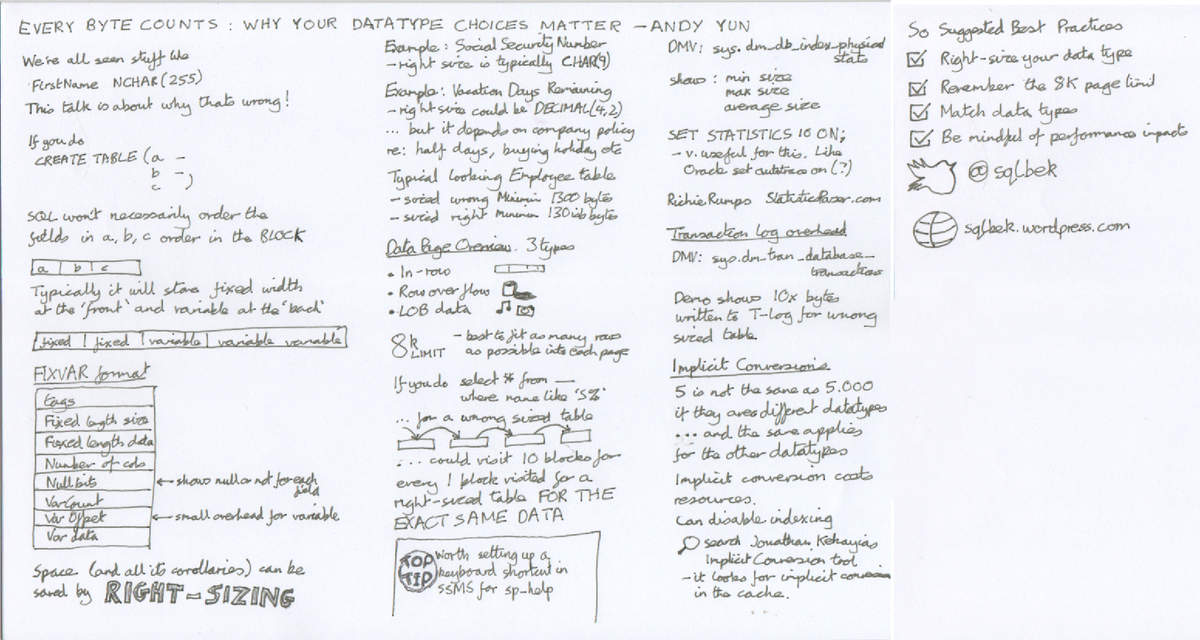 EVERY BYTE COUNTS : WHY YOUR DATATYPE CHOICES MATTER - ANDY YUN
We're all seen stuff like
FirstName NCHAR(255)
This talk is about why thats wrong!
If you do
CREATE TABLE (a -
b -
c -)
SQL won't necessarily order the
fields in a, b, c order in the BLOCK
a b c
Typically it will store fixed width
at the 'front' and variable at the 'back'
fixed | fixed | variable | variable variable
FIXVAR format
tags
Fixed length size
Fixed length data
Number of cols
Null bits ← shows null or not for each field
VarCount
Var Offset ← small overhead for variable
Var data
Space (and all its corollaries) can be
saved by RIGHT-SIZING
Example: Social Security Number
- right size is typically CHAR(9)
Example: Vacation Days Remaining
- right size could be DECIMAL(4,2)
... but it depends on company policy
re: half days, buying holiday etc
Typical looking Employee table
- sized wrong Minimum 1300 bytes
- sized right Minimum 130 bytes
Data Page Overview. 3 types
• In-row
• Row overflow
• LOB data
8k LIMIT - best to fit as many rows
as possible into each page
If you do select * from __
where name like 'S%'
... for a wrong sized table
.... could visit 10 blocks for
every 1 block visited for a
right-sized table FOR THE
EXACT SAME DATA
TOP TIP
Worth setting up a
keyboard shortcut in
SSMS for sp-help
DMV: sys.dm_db_index_physical
stats
shows : min size
max size
average size
SET STATISTICS IO ON;
- v. useful for this. Like
Oracle set autotrace on (?)
Richie Rumps StatisticParser.com
Transaction Log overhead
DMV: sys.dm_tran_database_
transactions
Demo shows 10x bytes
written to T-Log for wrong
sized table.
Implicit Conversions
5 is not the same as 5.000
if they are different datatypes
... and the same applies
for the other datatypes
Implicit conversion costs
resources.
Can disable indexing
search Jonathan Kehayias
Implicit Conversion tool
- it looks for implicit conversion
in the cache.
...
So Suggested Best Practices
Right-size your data type
Remember the 8K page limit
Match data types
Be mindful of performance impacts
@sqlbek
sqlbek.wordpress.com